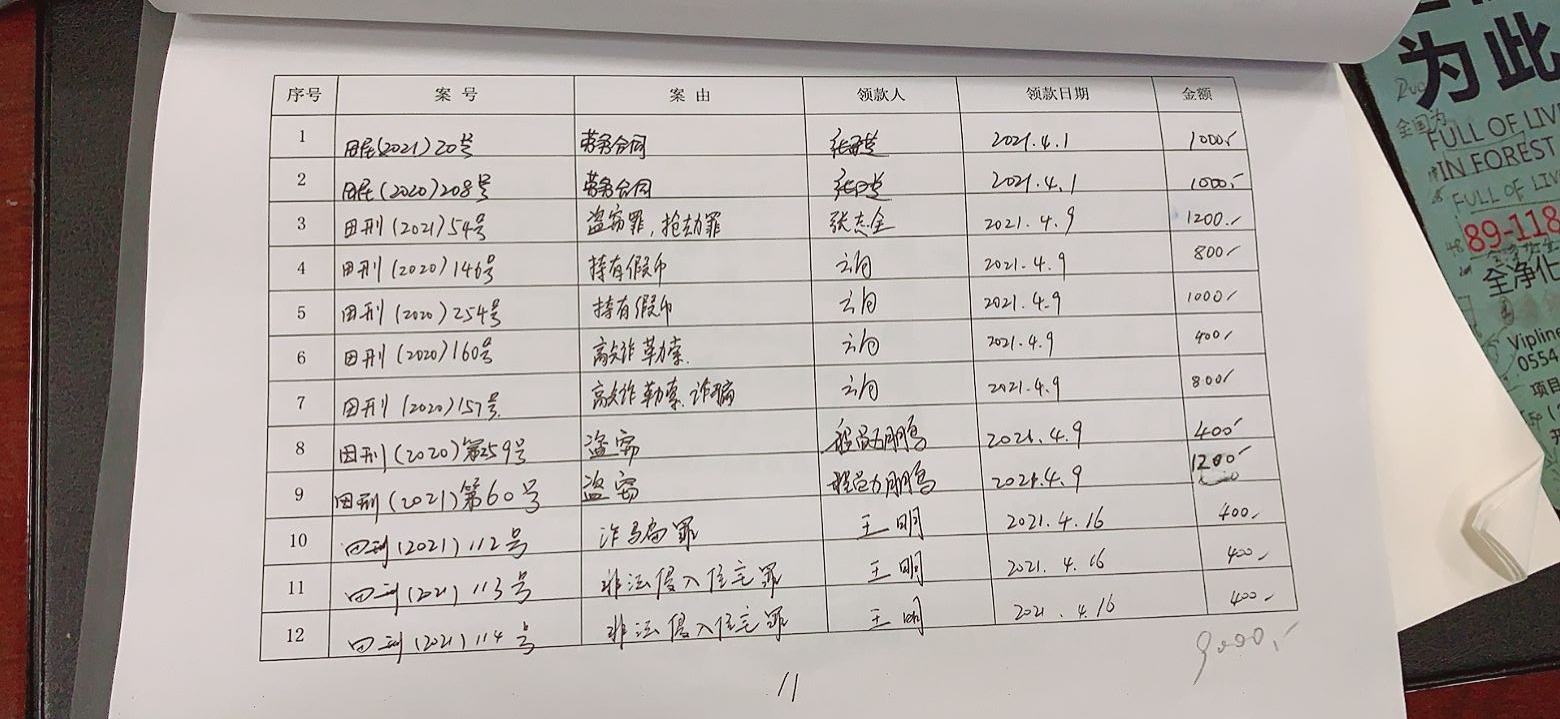 序号 案号 案由 领款人 领款日期 金额
1 田民(2021)20号 劳务合同 2021.4.1 1000.-
2 田民(2020)208号 劳务合同 2021.4.1 1000.-
3 田刑(2021)54号 盗窃罪,抢劫罪 张杰全 2021.4.9 1200.-
4 田刑(2020)146号 持有假币 2021.4.9 800/-
5 田刑(2020)254号 持有假币 2021.4.9 1000/-
6 田刑(2020)160号 敲诈勒索. 2021.4.9 400/-
7 田刑(2020)157号. 敲诈勒索.诈骗 2021.4.9 800/-
8 田刑(2020)第259号 盗窃 2021.4.9 400-
9 田刑(2021)第60号 盗窃 2021.4.9 1200-
10 田刑(2021)112号 诈骗罪 王明 2021.4.16 400.-
11 田刑(2021)113号 非法侵入住宅罪 王明 2021.4.16 400.-
12 田刑(2021)114号 非法侵入住宅罪 王明 2021.4.16 400.-
9000.-
11
为此
全国为
FULL OF LIV
IN FOREST
FULL OF LIV
89-118
全净化
Viplin
0554
项目